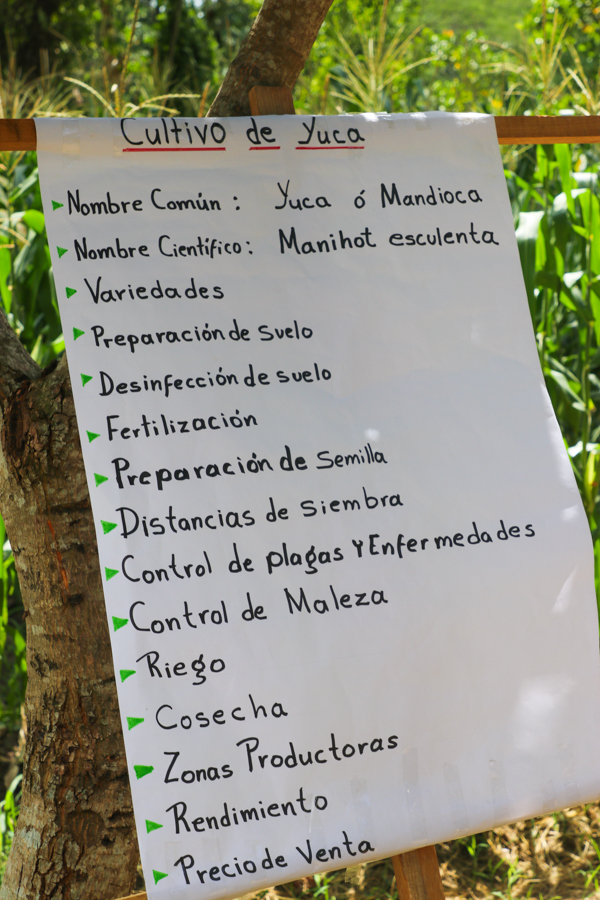 Cultivo de Yuca
Nombre Común : Yuca ó Mandioca
Nombre Científico: Manihot esculenta
Variedades
Preparación de suelo
Desinfección de suelo
Fertilización
Preparación de Semilla
Distancias de siembra
Control de plagas Y Enfermedades
Control de Maleza
Riego
Cosecha
Zonas Productoras
Rendimiento
Precio de Venta